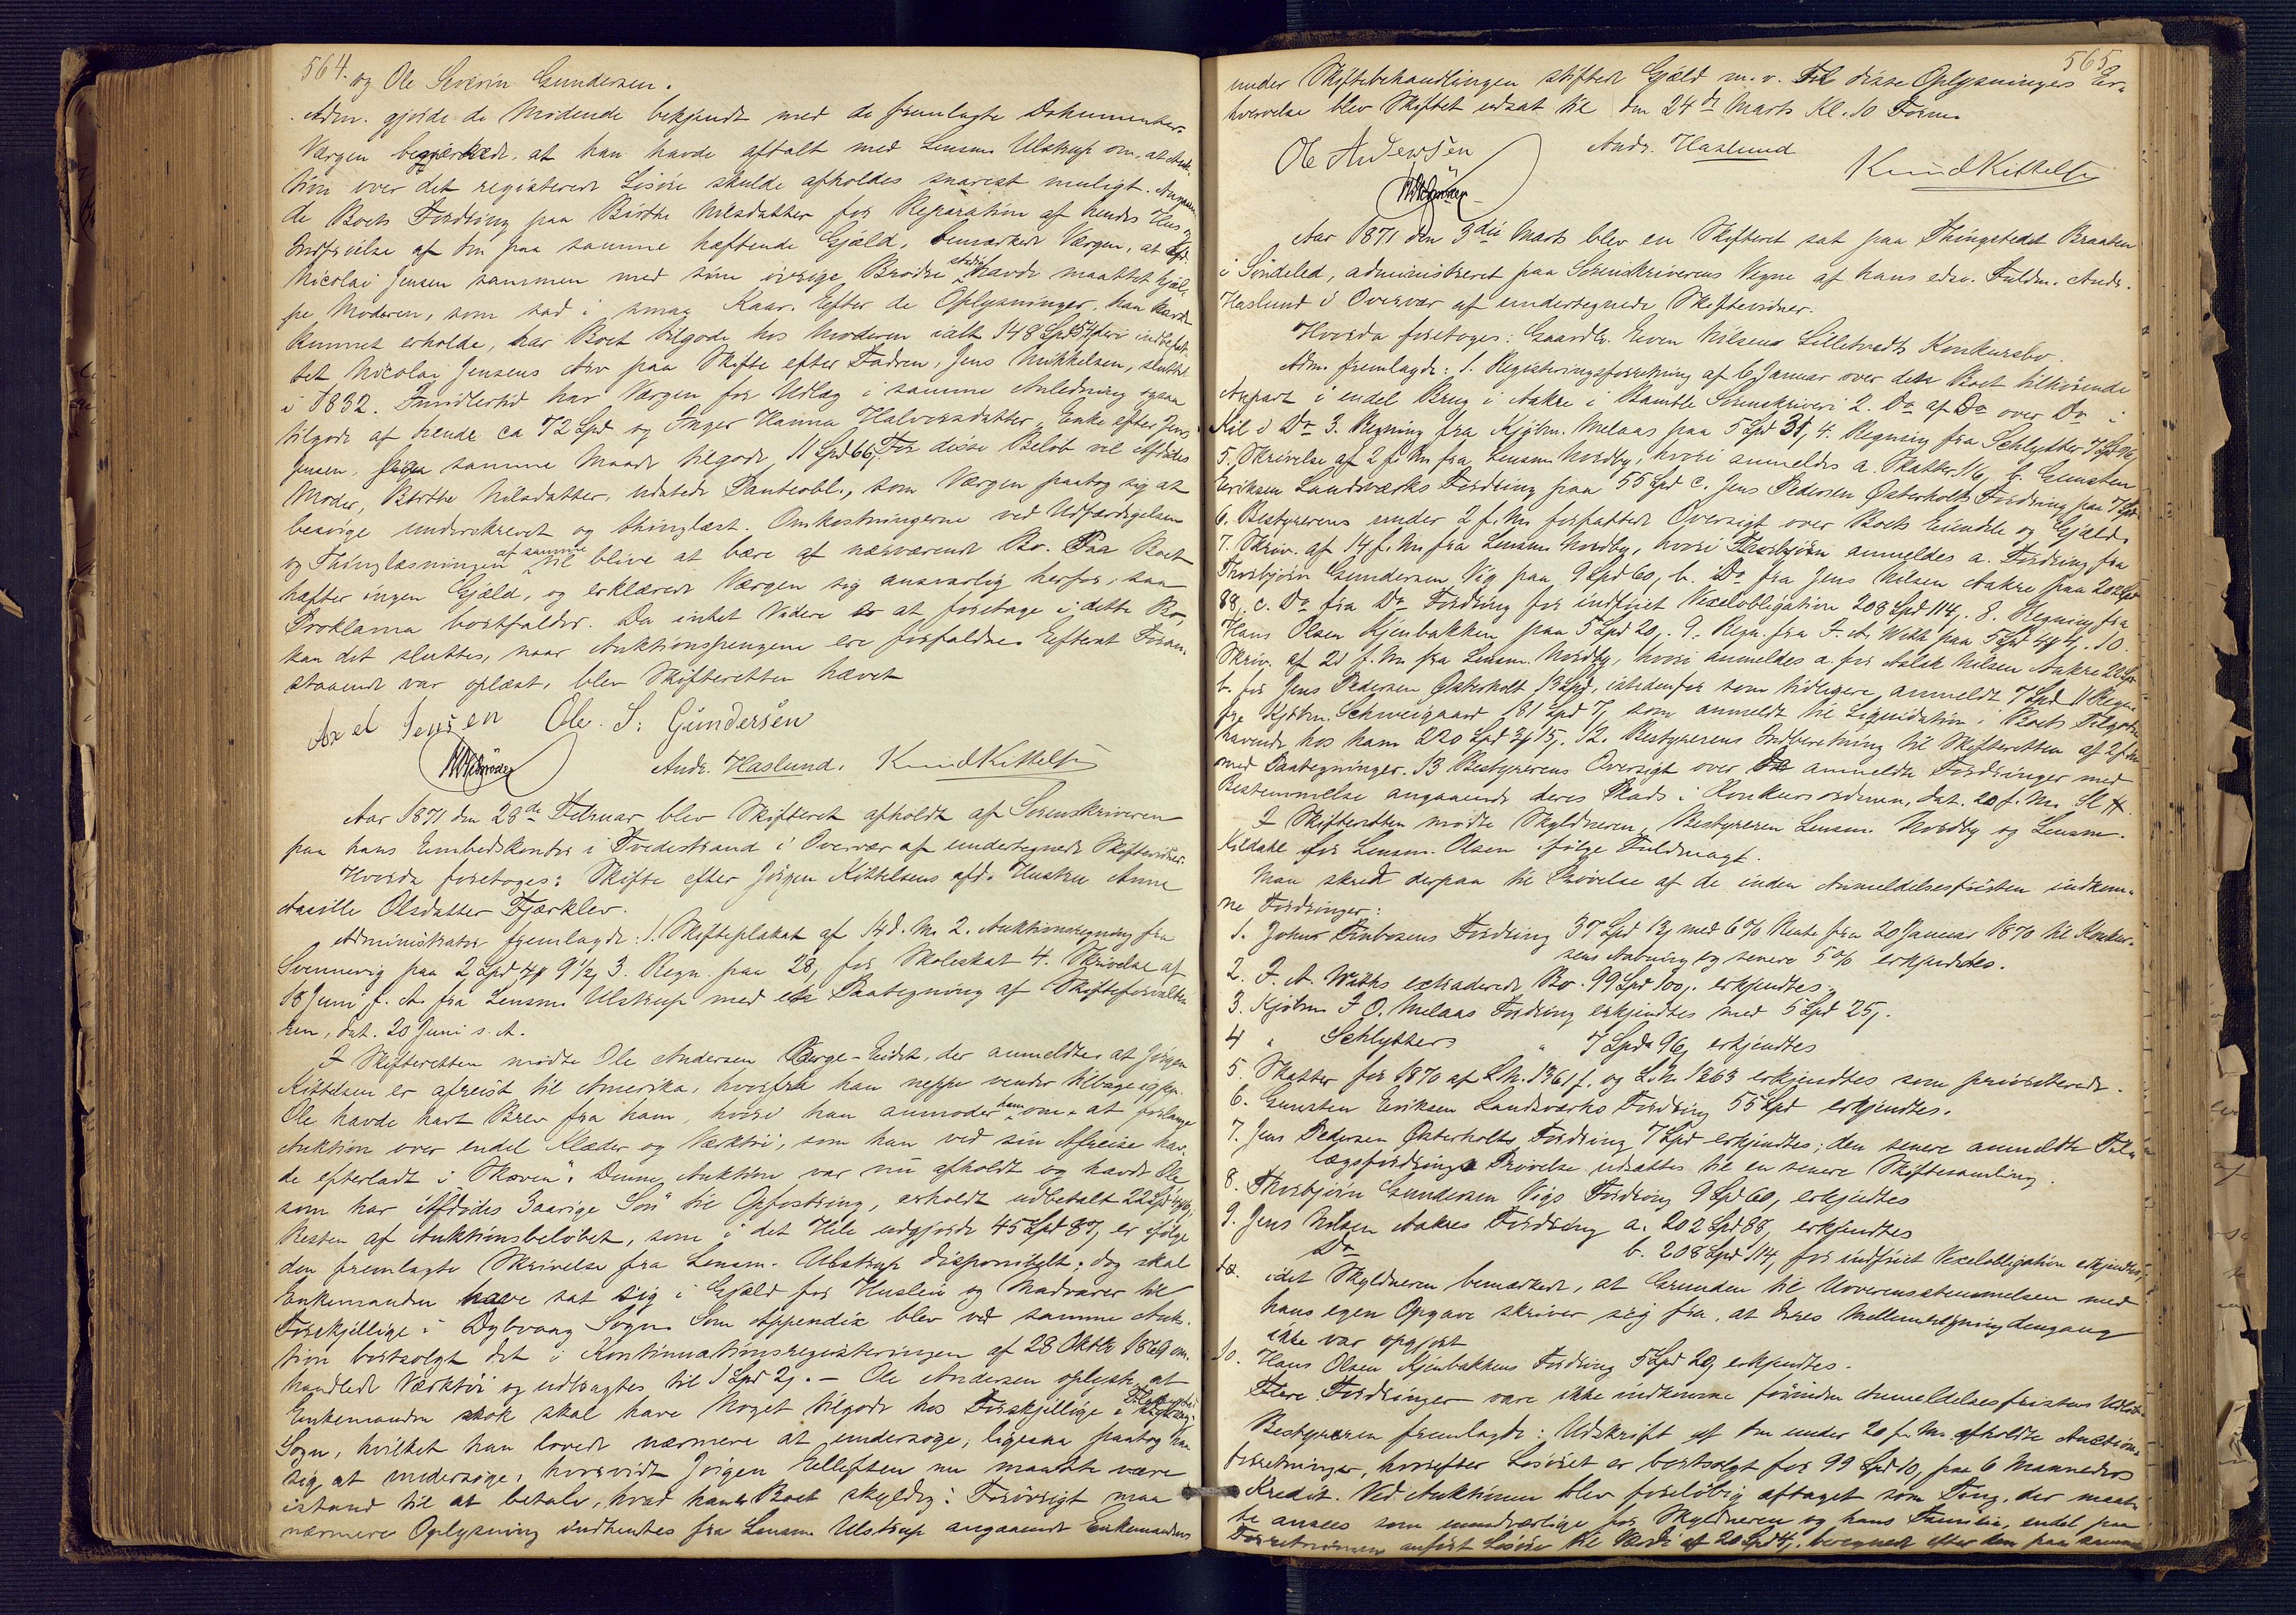 564.
og Ole Severin Gundersen.
Adm. gjorde de Mødende bekjendt med de fremlagte Dokumenter.
Værgen bemærkede, at han havde aftalt med Lensm. Ulstrup om, at Auk-
tion over det registrerede Løsøre skulde afholdes snarest muligt. Angaaen-
de Boets Fordring paa Birthe Nilsdatter for Reparation af hendes Hus og
Indfrielse af den paa samme heftende Gjæld, bemærkede Værgen, at Afd.
Nicolai Jensen sammen med sine øvrige Brødre stedse havde maattet hjæl-
pe Moderen, som sad i smaa Kaar. Efter de Oplysninger, han havde
kunnet erholde, har Boet tilgode hos Moderen ialt 148 Spd deri indbefat-
tet Nicolai Jensens Arv paa Skifte efter Fadren, Jens Mikkelsen, sluttet
i 1832. Imidlertid har Værgen for Udlæg i samme Anledning ogsaa
tilgode af hende ca 72 Spd og Inger Hanna Halvorsdatter, Enke efter Jens
Jensen, paa samme Maade tilgode 11 Spd 66 β. For disse Beløb vil Afdødes
Moder, Birthe Nilsdatter, udstede Panteobl., som Værgen paatog sig at
besørge underskrevet og thinglæst. Omkostningerne ved Udfærdigelsen
og Thinglæsningen af samme vil blive at bære af nærværende Bo. Paa Boet
hefter ingen Gjæld, og erklærede Værgen sig ansvarlig herfor, saa
Proklama bortfalder. Da intet Videre er at foretage i dette Bo,
kan det sluttes, naar Auktionspengene ere forfaldne. Efterat Foran-
staaende var oplæst, blev Skifteretten hævet
Axel Jensen Ole. S: Gundersen
Andr. Haslund. Knud Kittelsen
Aar 1871 den 28de Februar blev Skifteret afholdt af Sorenskriveren
paa hans Embedskontor i Tvedestrand i Overvær af undertegnede Skiftevidner.
Hvorda foretoges: Skifte efter Jørgen Kittelsens afd. Hustru Anne
Aasille Olsdatter Fjærklev.
Administrator fremlagde: 1. Skifteplakat af 14 d. M. 2. Auktionsregning fra
Svennevig paa 2 Spd 4 β 9 1/2, 3. Regn. paa 28 β for Skoleskat 4. Skrivelse af
18 Juni f. A. fra Lensm. Ulstrup med Paategning af Skifteforvalte-
ren, dat. 20 Juni s. A.
I Skifteretten mødte Ole Andersen Berge-Eidet, der anmeldte, at Jørgen
Kittelsen er afreist til Amerika, hvorfra han neppe vender tilbage igjen.
Ole havde havt Brev fra ham, hvori han anmoder ham om at forlange
Auktion over endel Klæder og Værktøi, som han ved sin Afreise hav-
de efterladt i "Skoven". Denne Auktion var nu afholdt og havde Ole,
som har Afdødes 3aarige Søn til Opfostring, erholdt udbetalt 22 Spd
Resten af Auktionsbeløbet, som i det Hele udgjorde 45 Spd 87 β, er ifølge
den fremlagte Skrivelse fra Lensm. Ulstrup disponibelt; dog skal
Enkemanden have sat sig i Gjæld for Husleie og Madvarer til
Forskjellige i Dybvaag Sogn. Som Appendix blev ved samme Auk-
tion bortsolgt det i Kontinuationsregistreringen af 28 Oktbr 1869 om-
handlede Værktøi og udbragtes til 1 Spd 2 β. — Ole Andersen oplyste, at
Enkemanden skal have Noget tilgode hos Forskjellige i
Sogn, hvilket han lovede nærmere at undersøge, ligesaa paatog han
sig at undersøge, hvorvidt Jørgen Ellefsen nu maatte være
istand til at betale, hvad han er Boet skyldig. Forøvrigt maa
nærmere Oplysning indhentes fra Lensm. Ulstrup angaaende Enkemandens
565.
under Skiftebehandlingen stiftede Gjæld m. v. Til disse Oplysningers Er-
hvervelse blev Skiftet udsat til den 24de Marts Kl. 10 Form.
Ole Andersen Andr. Haslund
Knud Kittelsen
Aar 1871 den 3die Marts blev en Skifteret sat paa Thingstedet Braaten
i Søndeled, administreret paa Sorenskriverens Vegne af hans edsv. Fuldm. Andr.
Haslund i Overvær af undertegnede Skiftevidner.
Hvorda foretoges: Gaardbr. Even Nilsens Lilletvedts Konkursbo.
Adm. fremlagde: 1. Registreringsforretning af 6 Januar over den Boet tilhørende
Anpart i endel Brug i Aakre i Bamble Sorenskriveri 2. Do af Do over Do i
Kil i Do 3. Regning fra Kjøbm. Melaas paa 5 Spd 31 β, 4. Regning fra Schlytter 7 Spd 96 β
5. Skrivelse af 2 f. M. fra Lensm. Nordby, hvori anmeldes a. Skatter b. Gunsten
Eriksen Landsværks Fordring paa 55 Spd c. Jens Pedersen Østerholts Fordring paa 7 Spd
6. Bestyrerens under 2 f. M. forfattede Oversigt over Boets Eiendele og Gjæld.
7. Skriv. af 14 f. M. fra Lensm. Nordby, hvori anmeldes a. Fordring fra
Thorbjørn Gundersen Vig paa 9 Spd 60 β, b. Do fra Jens Nilsen Aakre paa 202 Spd
88 β, c. Do fra Do Fordring for indfriet Vexelobligation 208 Spd 114 β. 8. Regning fra
Hans Olsen Kjenbakken paa 5 Spd 20 β. 9. Regn. fra J. A. With paa 5 Spd 10.
Skriv. af 20 f. M. fra Lensm. Nordby, hvori anmeldes a. for Aslak Nilsen Aakre 22 Spd
b. for Jens Pedersen Østerholt 13 Spd, istedenfor som tidligere anmeldt 7 Spd 11 Regn.
fra Kjøbm. Schweigaard 181 Spd 7 β, som anmeldt til Liquidation i Boets Tilgode-
havende hos ham 220 Spd 12. Bestyrerens Indberetning til Skifteretten af 2 f. M.
med Paategninger. 13 Bestyrerens Oversigt over anmeldte Fordringer med
Bestemmelse angaaende deres Plads i Konkursordenen, dat. 20 f. M.
I Skifteretten mødte Skyldneren, Bestyreren Lensm. Nordby og Lensm.
Kildahl for Lensm. Olsen ifølge Fuldmagt.
Man skred derpaa til Prøvelse af de inden Anmeldelsesfristen indkom-
ne Fordringer:
1. Johns Fordring 37 Spd 12 β med 6 % Rente fra 20 Januar 1870 til Konkur-
sens Aabning og senere 5 % erkjendtes.
2. J. A. Withs extraderede Bo. 99 Spd 100 β. erkjendtes.
3. Kjøbm. J O. Melaas Fordring erkjendtes med 5 Spd 25 β.
4 " Schlytters " 7 Spd 96 β erkjendtes
5. Skatter for 1870 af L.N. 136 f. og L.N. 1863 erkjendtes som prioriterede.
6. Gunsten Eriksen Landsværks Fordring 55 Spd erkjendtes.
7. Jens Pedersen Østerholts Fordring 7 Spd erkjendtes; den senere anmeldte Til-
lægsfordrings Prøvelse udsattes til en senere Skiftesamling.
8. Thorbjørn Gundersen Vigs Fordring 9 Spd 60 β erkjendtes
9. Jens Nilsen Aakres Fordring a. 202 Spd 88 β erkjendtes
Do b. 208 Spd 114 β for indfriet Vexelobligation erkjendtes,
idet Skyldneren bemærkede, at Grunden til Uoverensstemmelsen med
hans egen Opgave skriver sig fra, at deres Mellemregning dengang
ikke var opgjort
10. Hans Olsen Kjenbakkens Fordring 5 Spd 20 β erkjendtes.
Flere Fordringer vare ikke indkomne forinden Anmeldelsesfristens Udløb.
Bestyreren fremlagde: Udskrift af den under 20 f. M. afholdte Auctions-
forretninger, hvorefter Løsøret er bortsolgt for 99 Spd 10 β paa 6 Maaneders
Kredit. Ved Auktionen blev foreløbig aftaget som Ting, der maat-
te ansees som uundværlige for Skyldneren og hans Familie, endel paa
Forretningen anført Løsøre til Værdi af 20 Spd 4 β, beregnet efter den paa samme